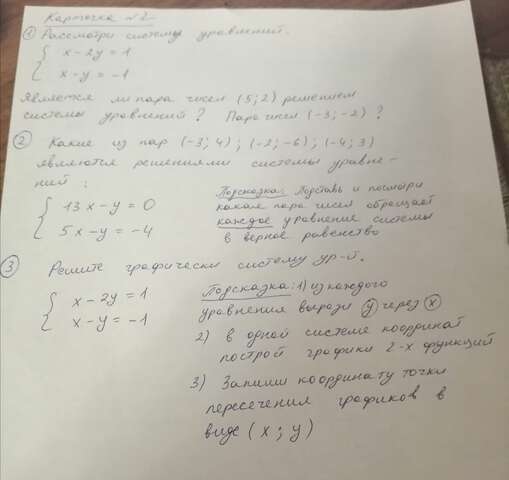 Карточка №2
① Рассмотри систему уравнений.
{ x - 2y = 1
x - y = -1
Является ли пара чисел (5; 2) решением
системы уравнений? Пара чисел (-3; -2)?
② Какие из пар (-3; 4); (-2; -6); (-4; 3)
являются решениями системы уравне-
ний:
{ 13x - y = 0
5x - y = -4
Подсказка: Подставь и посмотри
какая пара чисел обращает
каждое уравнение системы
в верное равенство
③ Решите графически систему ур-й.
{ x - 2y = 1
x - y = -1
Подсказка: 1) из каждого
уравнения вырази y через x
2) в одной системе координат
построй графики 2-х функций
3) Запиши координату точки
пересечения графиков в
виде (x; y)